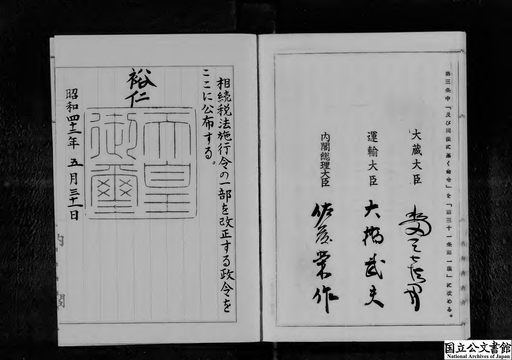 大蔵大臣 水田三喜男
運輸大臣 大橋武夫
内閣総理大臣 佐藤栄作
相続税法施行令の一部を改正する政令を
ここに公布する。
裕仁
天皇
御璽
昭和四十二年 五月三十一日
国立公文書館
National Archives of Japan